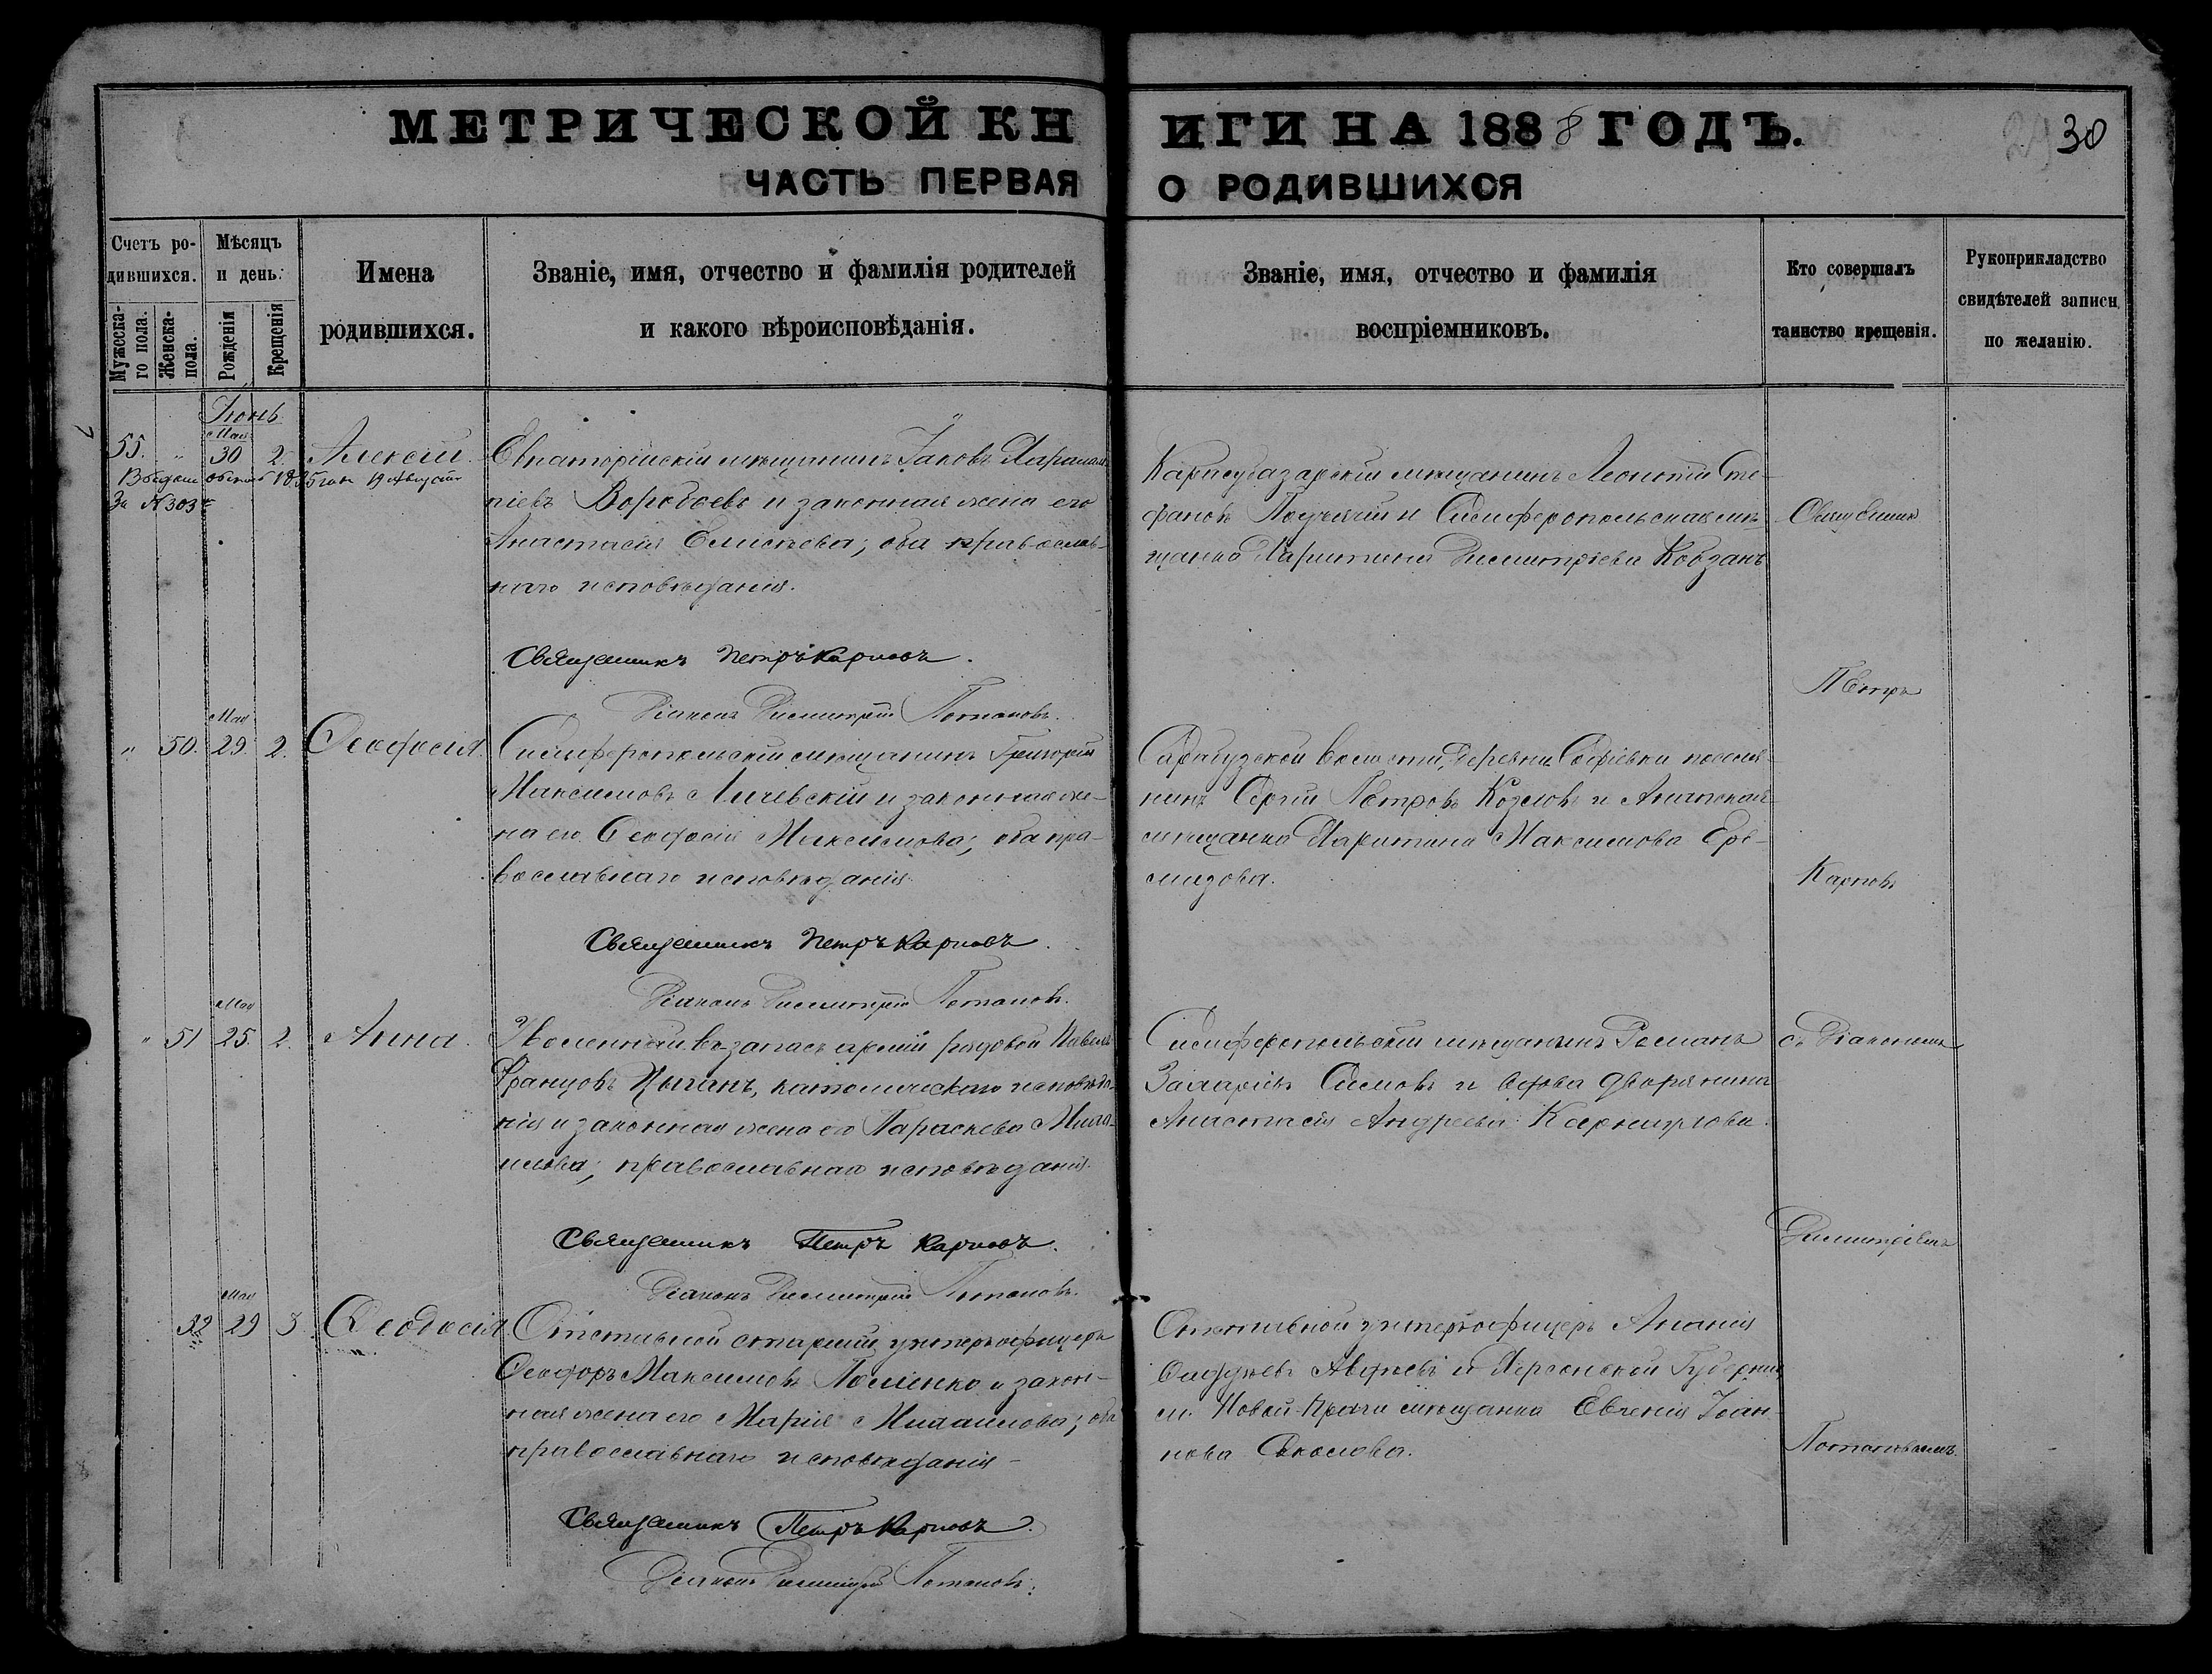 МЕТРИЧЕСКОЙ КНИГИ НА 1888 ГОДЪ.
30
ЧАСТЬ ПЕРВАЯ О РОДИВШИХСЯ
Счетъ ро-
дившихся.
Мужеска-
го пола.
Женска-
пола.
Мѣсяцъ
и день.
Рожденія
Крещенія
Имена
родившихся.
Званіе, имя, отчество и фамилія родителей
и какого вѣроисповѣданія.
Званіе, имя, отчество и фамилія
воспріемниковъ.
Кто совершалъ
таинство крещенія.
Рукоприкладство
свидѣтелей записи
по желанію.
Іюнь
Мая
55. " 30 2. Алексій.
19 Августа
За № 303
Евпаторійскій мѣщанинъ Іаковъ Харалам-
піевъ Воробьевъ и законная жена его
Анастасія Елисѣева; оба православ-
наго исповѣданія.
Священникъ Петръ Карповъ.
Діаконъ Димитрій Потаповъ.
Карасубазарскій мѣщанинъ Леонтій Сте-
фановъ и Симферопольская мѣ-
щанка Харитина Димитріева Кобзанъ
Священник
Петръ
Мая
" 50. 29. 2. Ѳеодосія.
Симферопольскій мѣщанинъ Григорій
Максимовъ Личевскій и законная же-
на его Ѳеодосія Максимова; оба пра-
вославнаго исповѣданія
Священникъ Петръ Карповъ.
Діаконъ Димитрій Потаповъ.
Сарабузской волости, деревни Софіевки поселя-
нинъ Сергій Петровъ Козловъ и Анапская
мѣщанка Харитина Максимова Ере-
мизова.
Карповъ
Мая
" 51 25. 2. Анна.
Уволенный въ запасъ арміи рядовой Павелъ
Францовъ Цыганъ, католическаго исповѣда-
нія и законная жена его Параскева Михай-
лова; православнаго исповѣданія.
Священникъ Петръ Карповъ.
Діаконъ Димитрій Потаповъ.
Симферопольскій мѣщанинъ Романъ
Захаріевъ Симовъ и вдова дворянина
Анастасія Андреева
съ Діакономъ
Димитріемъ
Мая
52 29 3. Ѳеодосія
Отставной старшій унтеръ-офицеръ
Ѳеодоръ Максимовъ и закон-
ная жена его Марія Михаилова; оба
православнаго исповѣданія
Священникъ Петръ Карповъ.
Діаконъ Димитрій Потаповъ.
Отставной унтеръ-офицеръ Ананія
Авдѣевъ и Херсонской Губерніи
м. Новой-Праги мѣщанка Евгенія Іоан-
нова Соколова.
Потаповымъ.